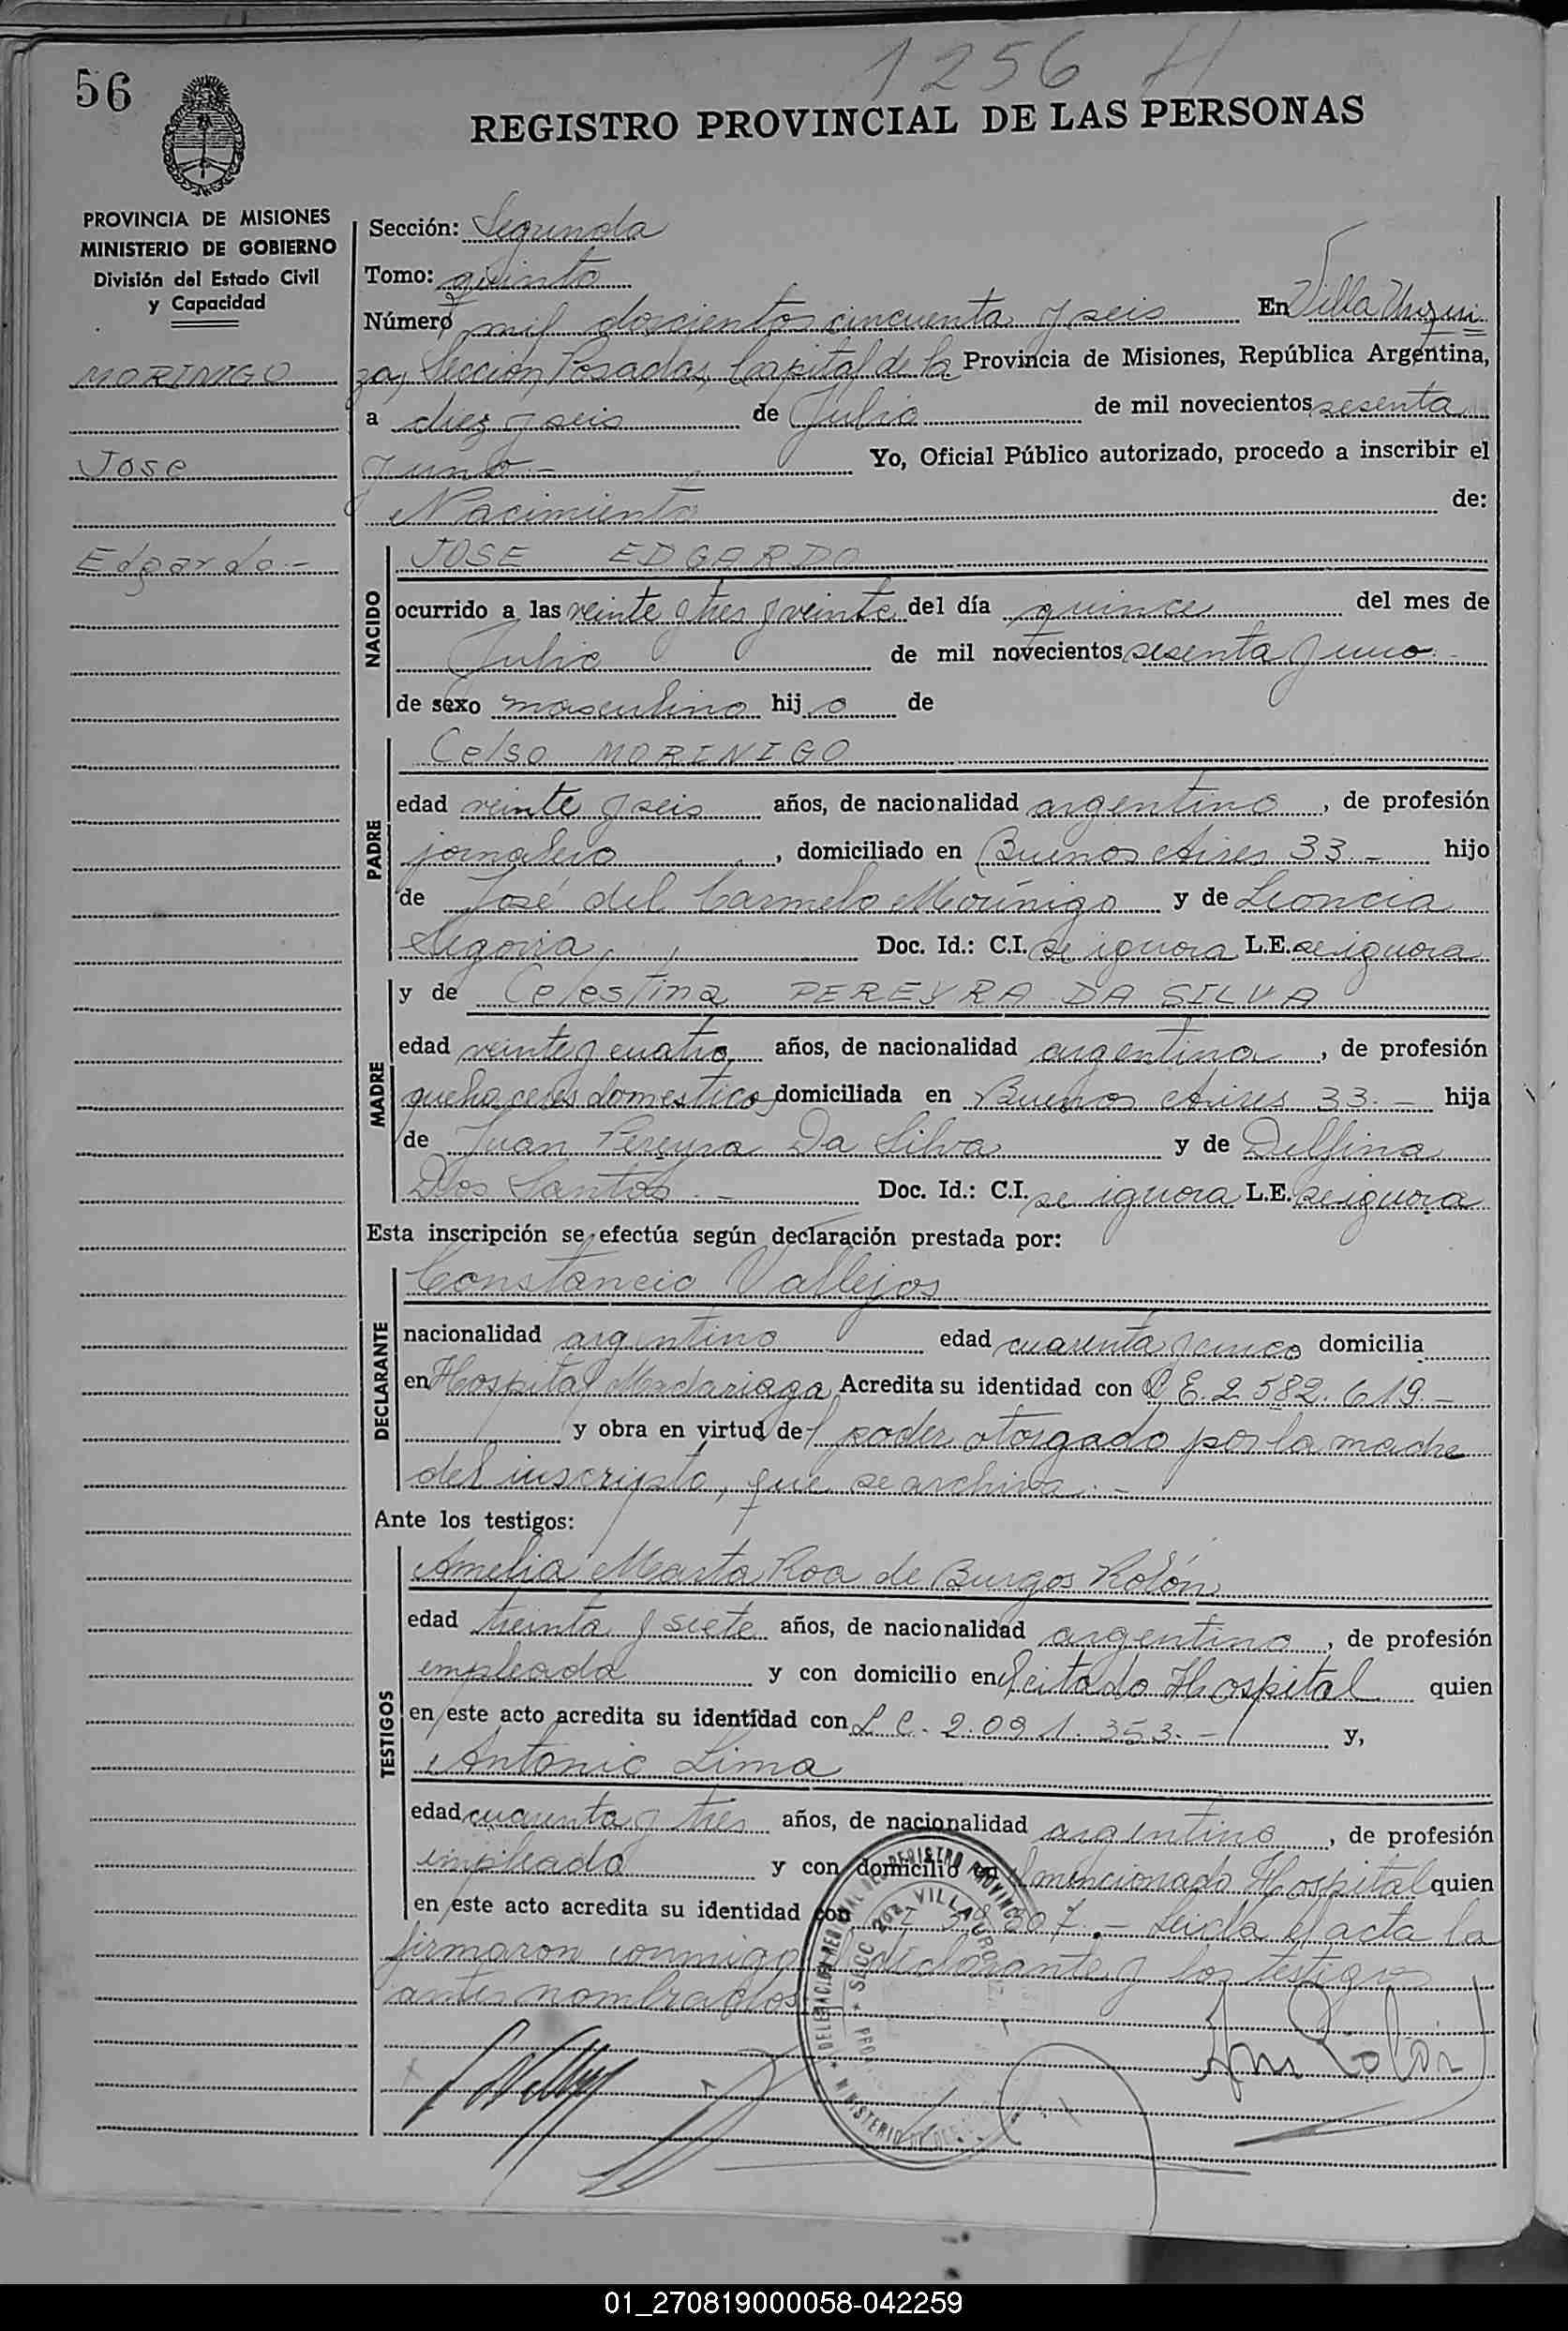 56
1256 H
REGISTRO PROVINCIAL DE LAS PERSONAS
PROVINCIA DE MISIONES
MINISTERIO DE GOBIERNO
División del Estado Civil
y Capacidad
MORINIGO
Jose
Edgardo.-
Sección: Segunda
Tomo: quinto
Número mil doscientos cincuenta y seis En Villa Urqui
za, Sección Posadas, Capital de la Provincia de Misiones, República Argentina,
a diez y seis de Julio de mil novecientos sesenta
y uno.- Yo, Oficial Público autorizado, procedo a inscribir el
Nacimiento de:
NACIDO
JOSE EDGARDO
ocurrido a las veinte y tres y veinte del día quince del mes de
Julio de mil novecientos sesenta y uno.-
de sexo masculino hijo de
PADRE
Celso MORINIGO
edad veinte y seis años, de nacionalidad argentino, de profesión
jornalero, domiciliado en Buenos Aires 33.- hijo
de José del Carmelo Morínigo y de Leoncia
Segovia Doc. Id.: C.I. se ignora L.E. se ignora
MADRE
y de Celestina PEREYRA DA SILVA
edad veinte y cuatro años, de nacionalidad argentina, de profesión
quehaceres domesticos domiciliada en Buenos Aires 33.- hija
de Juan Pereyra Da Silva y de Delfina
Dos Santos.- Doc. Id.: C.I. se ignora L.E. se ignora
Esta inscripción se efectúa según declaración prestada por:
DECLARANTE
Constancio Vallejos
nacionalidad argentino edad cuarenta y cinco domicilia
en Hospital Madariaga Acredita su identidad con C E. 2.582.619.-
y obra en virtud del poder otorgado por la madre
del inscripto, que se archiva.-
Ante los testigos:
TESTIGOS
Amelia Marta Roa de Burgos Rolón
edad treinta y siete años, de nacionalidad argentina, de profesión
empleada y con domicilio en el citado Hospital quien
en este acto acredita su identidad con L C. 2.091.353.- y,
Antonio Lima
edad cuarenta y tres años, de nacionalidad argentino, de profesión
empleado y con domicilio en el mencionado Hospital quien
en este acto acredita su identidad con .- Leida el acta la
firmaron conmigo el declarante y los testigos
antes nombrados
01_270819000058-042259